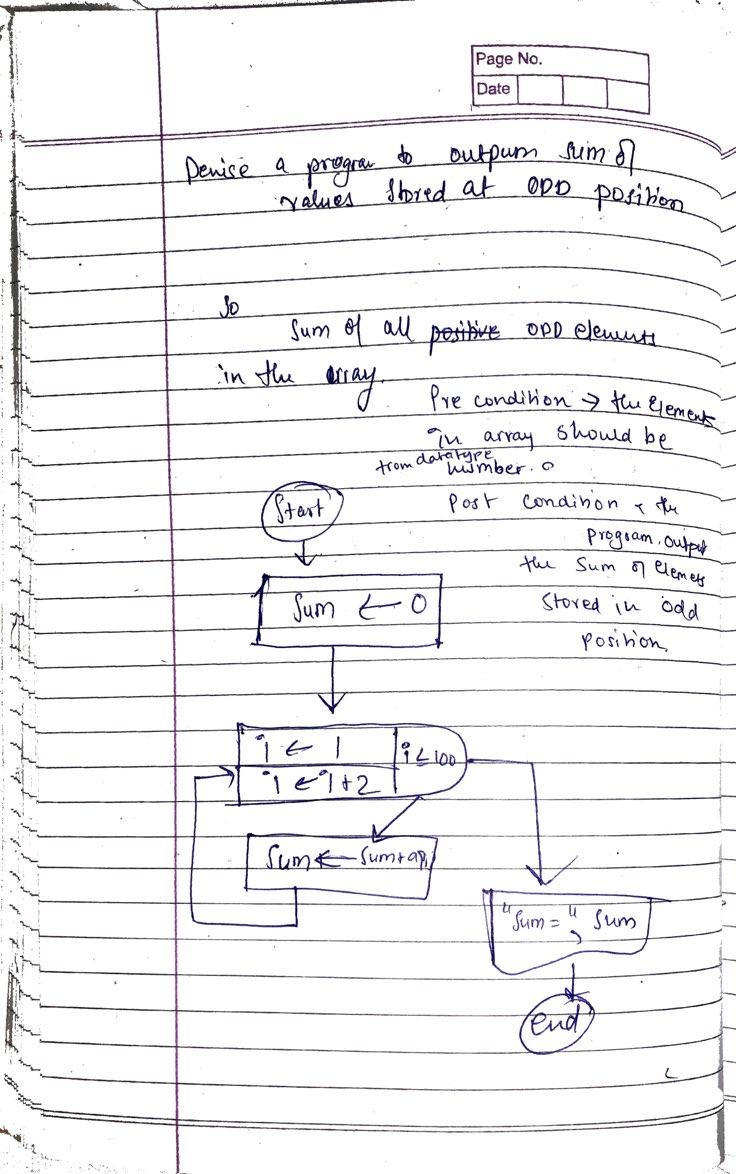 Page No.
Date
Denise a program to outpum sum of
values stored at ODD position
So
Sum of all positive ODD elements
in the array.
Pre condition → the Element
in array should be
from datatype
number.
Post condition the
program output
the sum of elemets
stored in odd
position.
Start
Sum ← 0
i ← 1
i ≤ 100
i ← i+2
Sum ← Sum +
"Sum = ", Sum
end